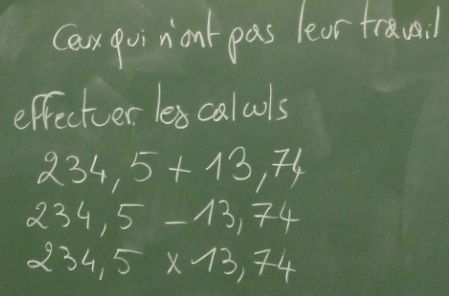 Ceux qui n'ont pas leur travail
effectuer les calculs
234,5 + 13,74
234,5 - 13,74
234,5 x 13,74